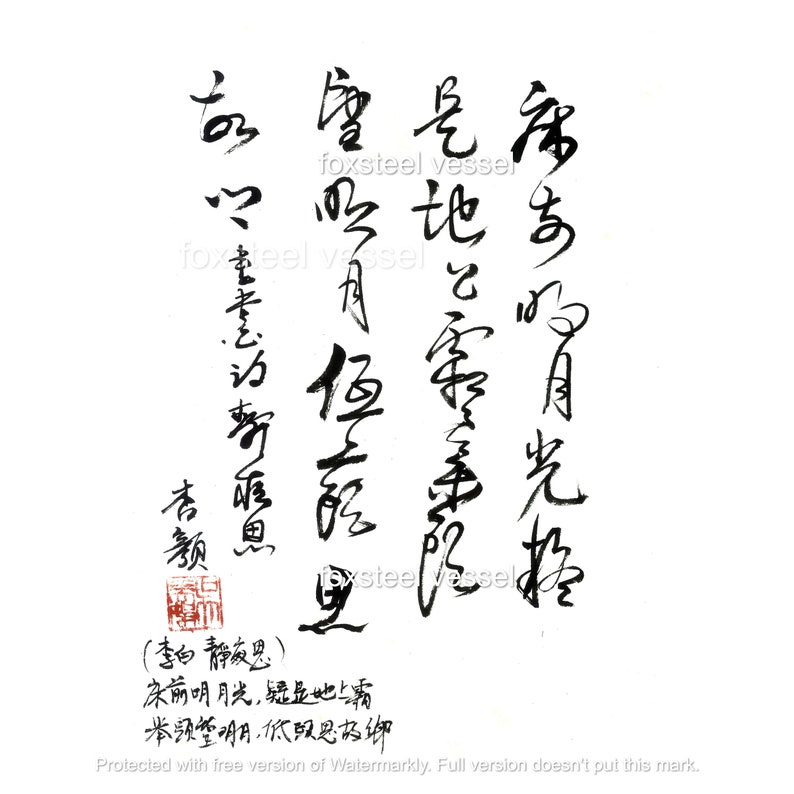 床前明月光疑
是地上霜舉頭
望明月低頭思
故鄉
李白 靜夜思
杏顏
(李白 靜夜思)
床前明月光,疑是地上霜
举頭望明月,低頭思故鄉
foxsteel vessel
foxsteel vessel
foxsteel vessel
Protected with free version of Watermarkly. Full version doesn't put this mark.